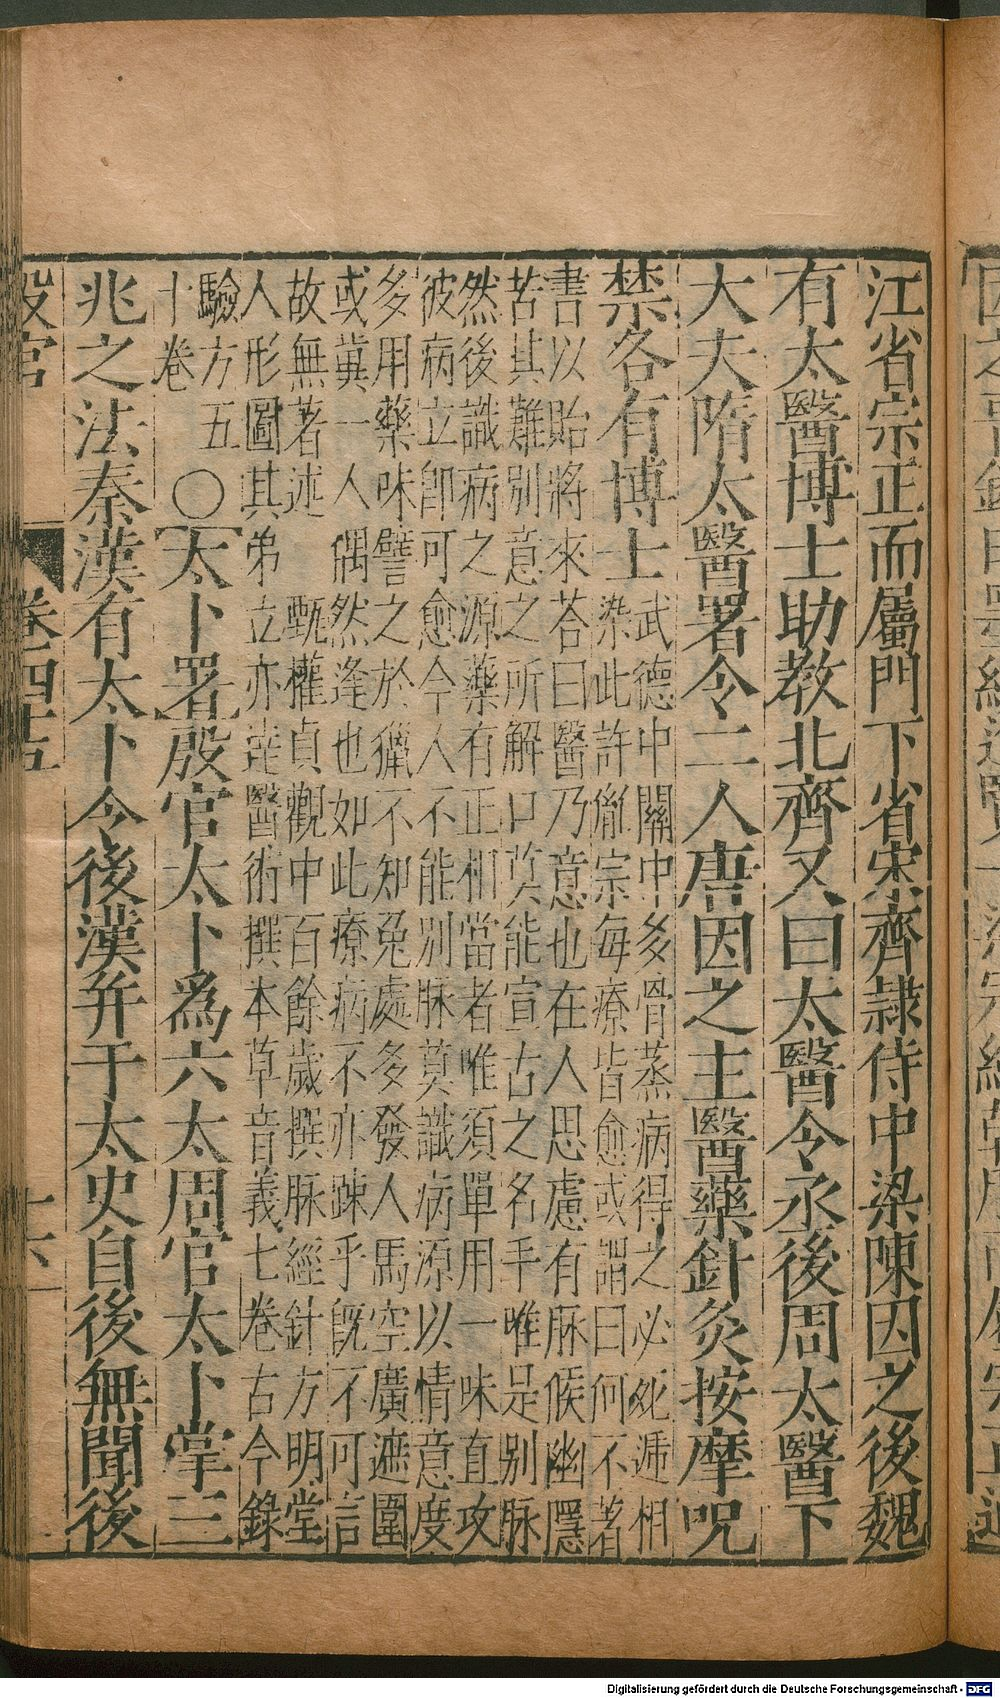 江省宗正而屬門下省宋齊隷侍中梁陳因之後魏
有太醫博士助教北齊又曰太醫令丞後周太醫下
大夫隋太醫署令二人唐因之主醫藥針灸按摩呪
禁各有博士
武德中關中多骨蒸病得之必死遞相
染此許胤宗每療皆愈或謂曰何不著
書以貽將來答曰醫乃意也在人思慮有脉候幽隱
苦其難別意之所解口莫能宣古之名手唯是別脉
然後識病之源藥有正相當者唯須單用一味直攻
彼病立卽可愈今人不能別脉莫識病源以情意度
多用藥味譬之於獵不知兔處多發人馬空廣遮圍
或冀一人偶然逢也如此療病不亦踈乎旣不可言
故無著述 甄權貞觀中百餘歲撰脉經針方明堂
人形圖其弟立亦達醫術撰本草音義七卷古今錄
驗方五
十卷
○太卜署殷官太卜爲六太周官太卜掌三
兆之法秦漢有太卜令後漢幷于太史自後無聞後
殷官 卷四十五 十六
Digitalisierung gefördert durch die Deutsche Forschungsgemeinschaft - DFG